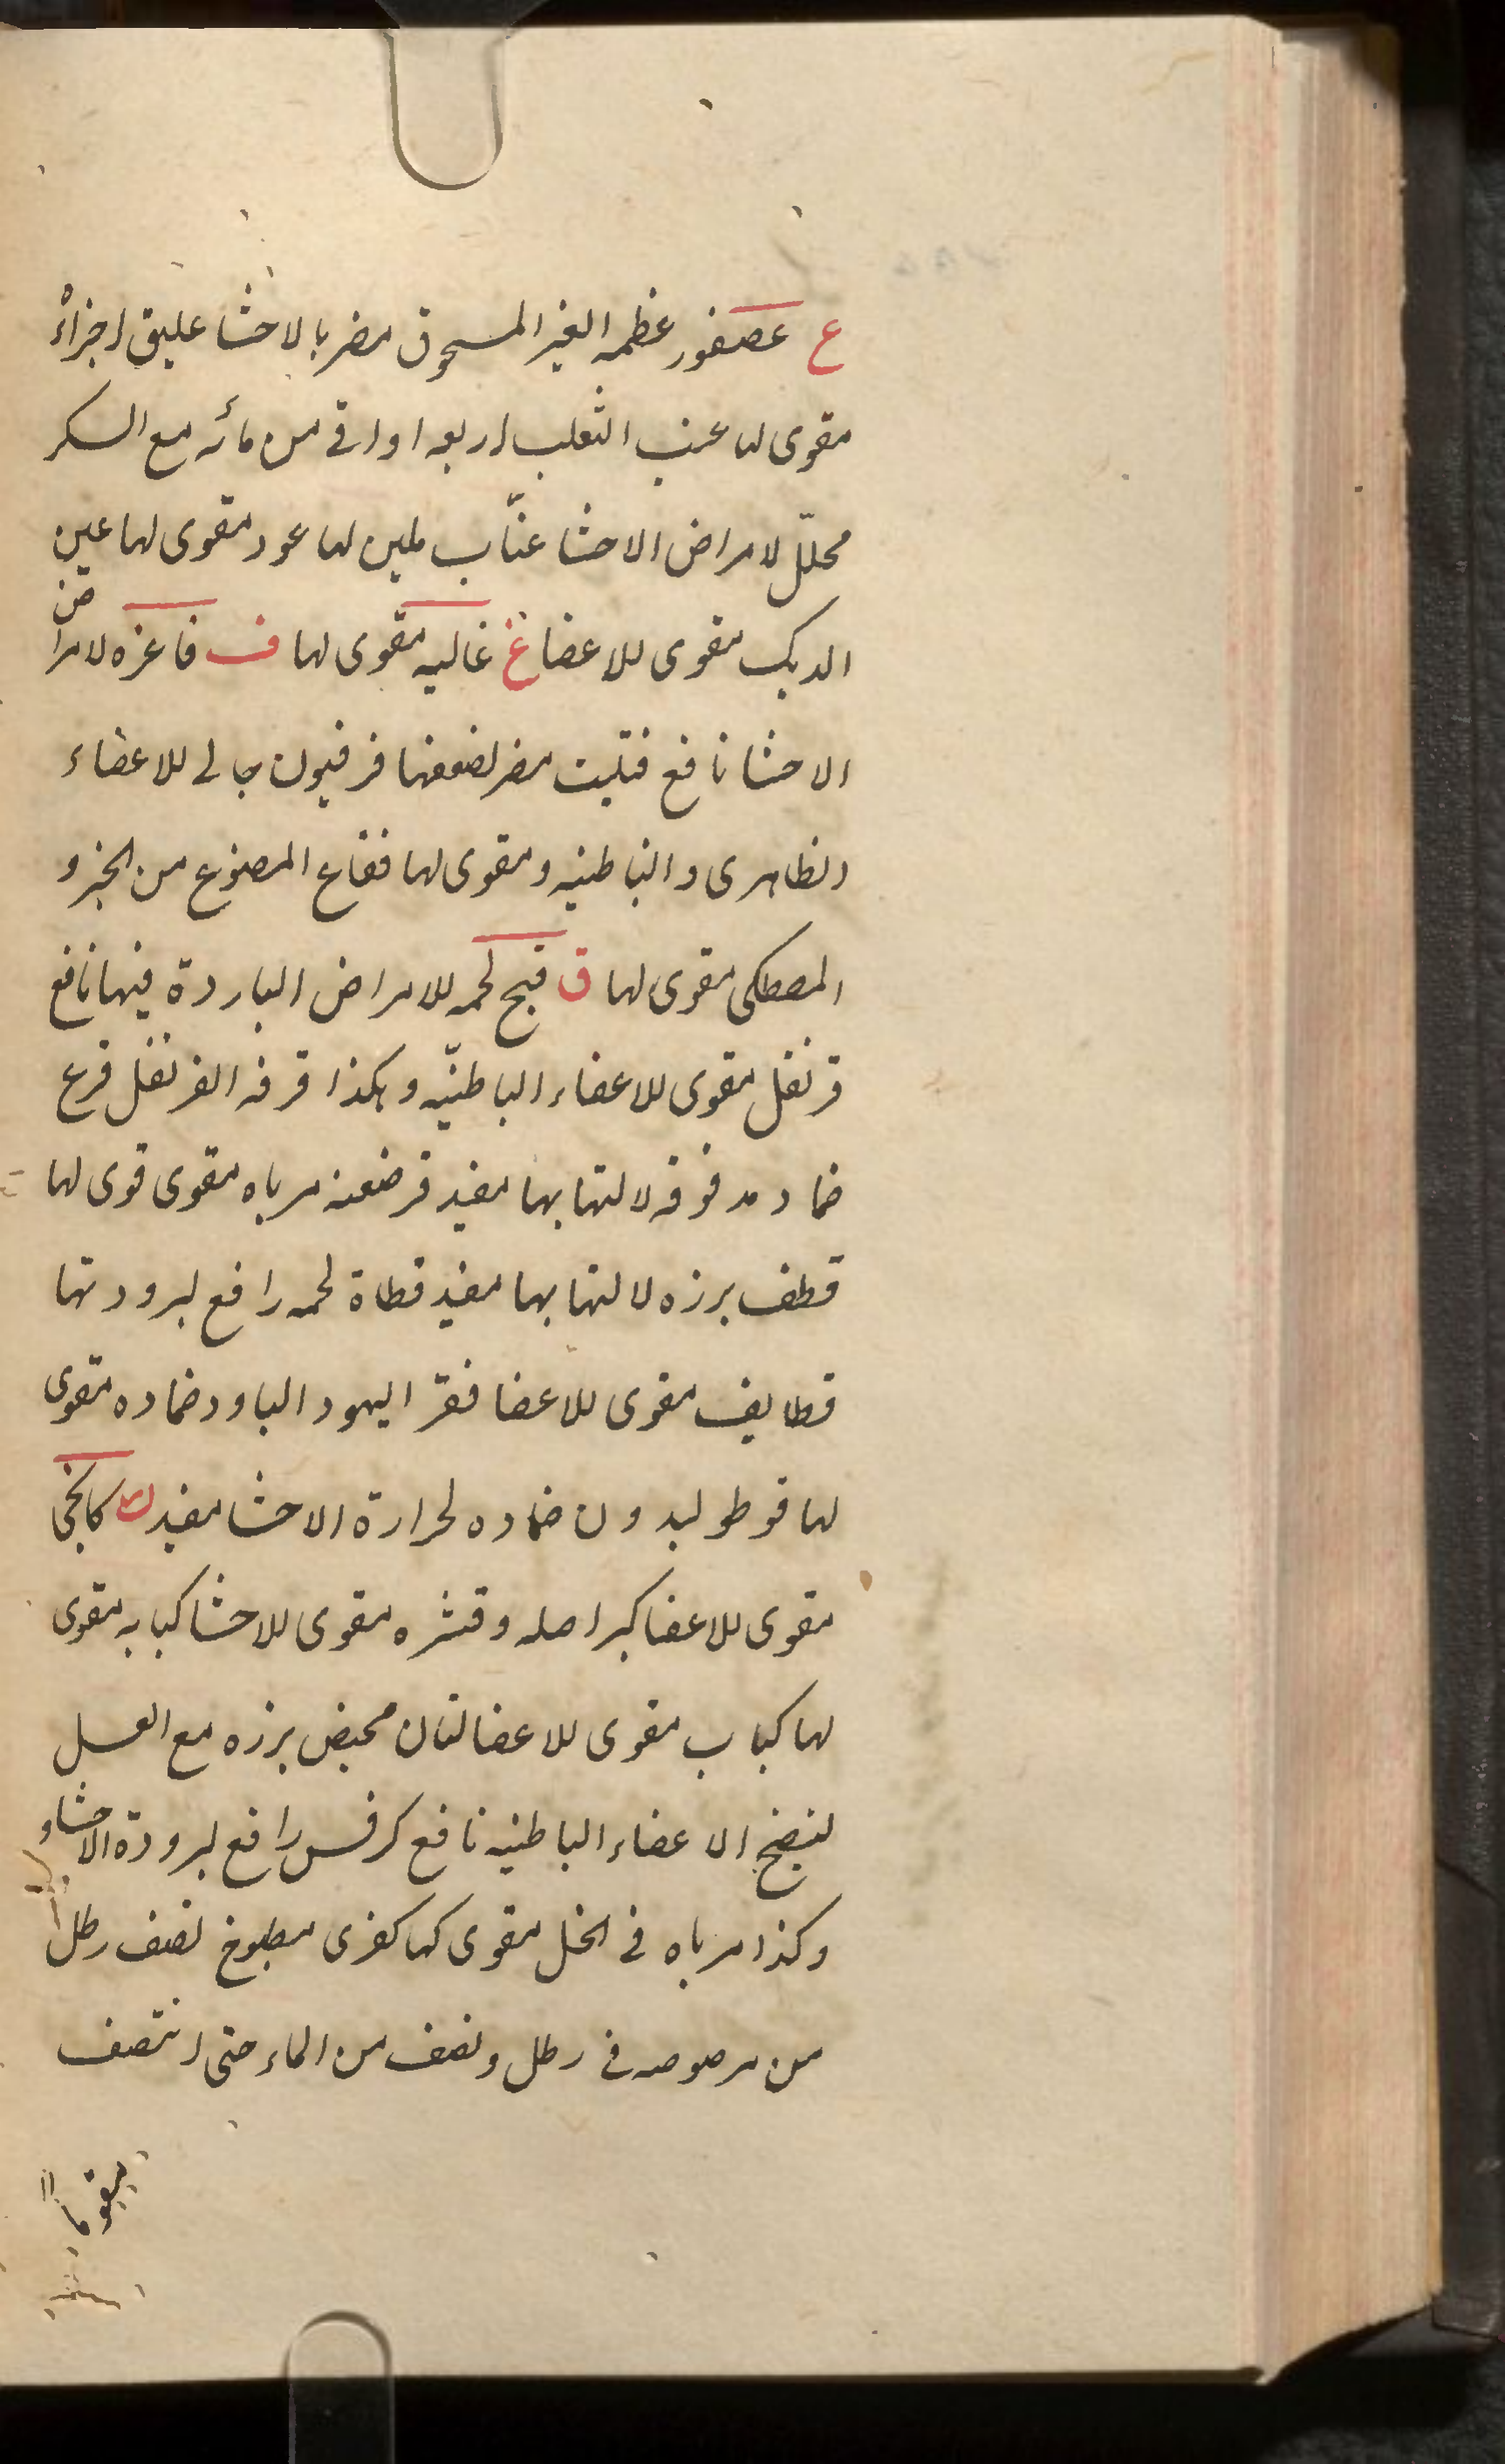 ع عصفور عظمه الغير المسحوق مضر بالاحشا عليق اجزاؤ
مقوى لها عنب الثعلب اربعه اواقى من مائه مع السكر
محلّل لامراض الاحشا عنّاب ملين لها عود مقوى لها عين
الديك مقوى للاعضا غ غاليه مقوى لها ف فاغره لامراض
الاحشا نافع فتيت مضر لضعفها فرفيون جالى للاعضاء
الظاهرى والباطنيه ومقوى لها فقاع المصنوع من الخبز و
المصطكى مقوى لها ق قبج لحمه للامراض الباردة فيها نافع
قرنفل مقوى للاعضاء الباطنيّه وهكذا قرفه القرنفل قرع
ضماد مدقوقه لالتهابها مفيد قرضعنه مرباه مقوى قوى لها
قطف برزه لالتهابها مفيد قطاة لحمه رافع لبرودتها
قطايف مقوى للاعضا فقر اليهود البارد ضماده مقوى
لها قوطوليدون ضماده لحرارة الاحشا مفيد ك كاكنج
مقوى للاعضا كبر اصله وقشره مقوى للاحشا كبابه مقوى
لها كباب مقوى للاعضا لتان محيض برزه مع العسل
لنضج الاعضاء الباطنيه نافع كرفس رافع لبرودة الاحشا و
وكذا مرباه فى الخل مقوى كها كفرى مطبوخ نصف رطل
من مرصوصه فى رطل ونصف من الماء حتى انتصف
يقوما